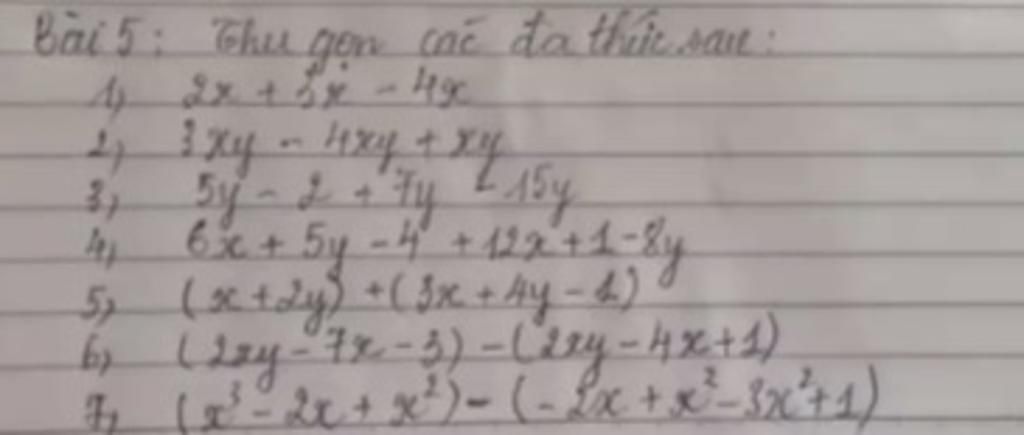 Bài 5: Thu gọn các đa thức sau:
1, 2x + 3x - 4x
2, 3xy - 4xy + xy
3, 5y - 2 + 7y - 15y
4, 6x + 5y - 4 + 12x + 1 - 8y
5, (x + 2y) + (3x + 4y - 1)
6, (2xy - 7x - 3) - (2xy - 4x + 1)
7, (x³ - 2x + x²) - (-2x + x² - 3x² + 1)